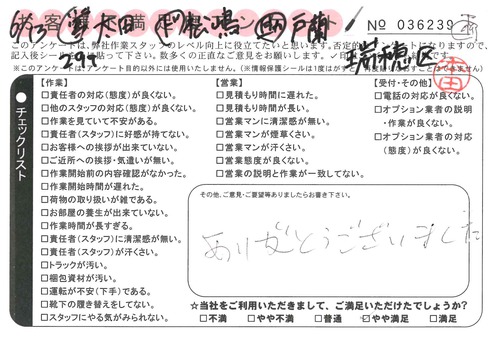 お客様不満アンケート
№ 036239
6/13
29t
瑞穂区
このアンケートは、弊社作業スタッフのレベル向上に役立てたいと思います。否定的
記入後シールを
下さい。数多くの正直なご意見をお願いします。
(※このアンケートは、アンケート目的以外には使用いたしません。
チェックリスト
【作業】
□責任者の対応(態度)が良くない。
□他のスタッフの対応(態度)が良くない。
□作業を見ていて不安がある。
□責任者(スタッフ)に好感が持てない。
□お客様への挨拶が出来ていない。
□ご近所への挨拶・気遣いが無い。
□作業開始前の内容確認がなかった。
□作業開始時間が遅れた。
□荷物の取り扱いが雑である。
□お部屋の養生が出来ていない。
□作業時間が長すぎる。
□責任者(スタッフ)に清潔感が無い。
□責任者(スタッフ)が汗くさい。
□トラックが汚い。
□梱包資材が汚い。
□運転が不安(下手)である。
□靴下の履き替えをしてない。
□スタッフにやる気がみられない。
【営業】
□見積もり時間に遅れた。
□見積もり時間が長い。
□営業マンに清潔感が無い。
□営業マンが煙草くさい。
□営業マンが汗くさい。
□営業態度が良くない。
□営業の説明と作業が一致してない。
【受付・その他】
□電話の対応が良くない。
□オプション業者の説明
・作業が良くない。
□オプション業者の対応
(態度)が良くない。
その他、ご意見・ご要望等ありましたらお書き下さい。
ありがとうございました
☆当社をご利用いただきまして、ご満足いただけたでしょうか?
□不満 □やや不満 □普通 ☑やや満足 □満足